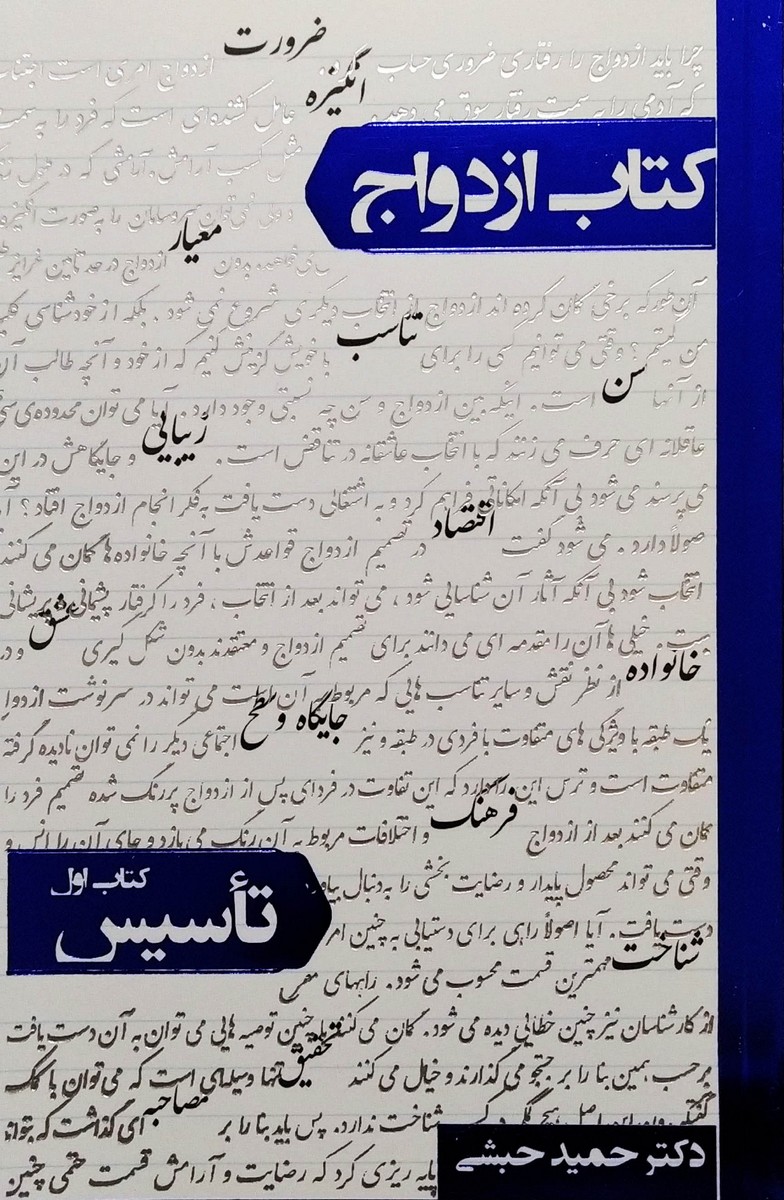 ضرورت
چرا باید ازدواج را رفتاری ضروری حساب ازدواج امری است
انگیزه
که آدمی را به سمت رفتار سوق می دهد. عامل کشنده‌ای است که فرد را به سمت
مثل کسب آرامش. آرامشی که در
کتاب ازدواج
نمی‌توان را به صورت انگیزه
معیار
بدون ازدواج درصد تامین غرایز
آن طور که برخی گمان کرده اند ازدواج از انتخاب دیگری شروع نمی شود. بلکه از خودشناسی
تناسب
من کیستم؟ وقتی می توانیم کسی را برای با خویش گزینش کنیم که از خود و آنچه طالب
سن
از آنها است. اینکه بین ازدواج و سن چه نسبتی وجود دارد. آیا می توان محدوده‌ی
زیبایی
عاقلانه ای حرف می زنند که با انتخاب عاشقانه در تناقض است. و جایگاهش در این
می پرسند می شود بی آنکه امکاناتی فراهم کرد و به اشتغالی دست یافت به فکر انجام ازدواج افتاد؟
اقتصاد
اصولاً دارد. می شود گفت در تصمیم ازدواج قواعدش با آنچه خانواده ها گمان می کنند
انتخاب شود بی آنکه آثار آن شناسایی شود، می تواند بعد از انتخاب، فرد را گرفتار پشیمانی و پریشانی
عشق
خیلی ها آن را مقدمه ای می دانند برای تصمیم ازدواج و معتقدند بدون شکل گیری
خانواده
از نظر نقش و سایر تناسب هایی که مربوط به آن است می تواند در سرنوشت ازدواج
جایگاه و سطح
یک طبقه با ویژگی های متفاوت با فردی در طبقه و نیز اجتماعی دیگر را نمی توان نادیده گرفته
متفاوت است و ترس این را دارد که این تفاوت در فردای پس از ازدواج پررنگ شده تصمیم فرد را
فرهنگ
گمان می کنند بعد از ازدواج و اختلافات مربوط به آن رنگ می بازد و جای آن را انس و
وقتی می تواند محصول پایدار و رضایت بخشی را به دنبال
کتاب اول
تأسیس
دست یافت. آیا اصولاً راهی برای دستیابی به چنین امر
شناخت
مهمترین قسمت محسوب می شود. راههای
از کارشناسان نیز چنین خطایی دیده می شود. گمان می کنند با چنین توصیه هایی می توان به آن دست یافت
تحقیق
برحسب همین بنا را بر جستجو می گذارند و خیال می کنند تنها وسیله‌ای است که می توان با کمک
مصاحبه
شناخت ندارد. پس باید بنا را بر ای گذاشت که بتواند
پایه ریزی کرد که رضایت و آرامش قسمت حتمی چنین
دکتر حمید حبشی